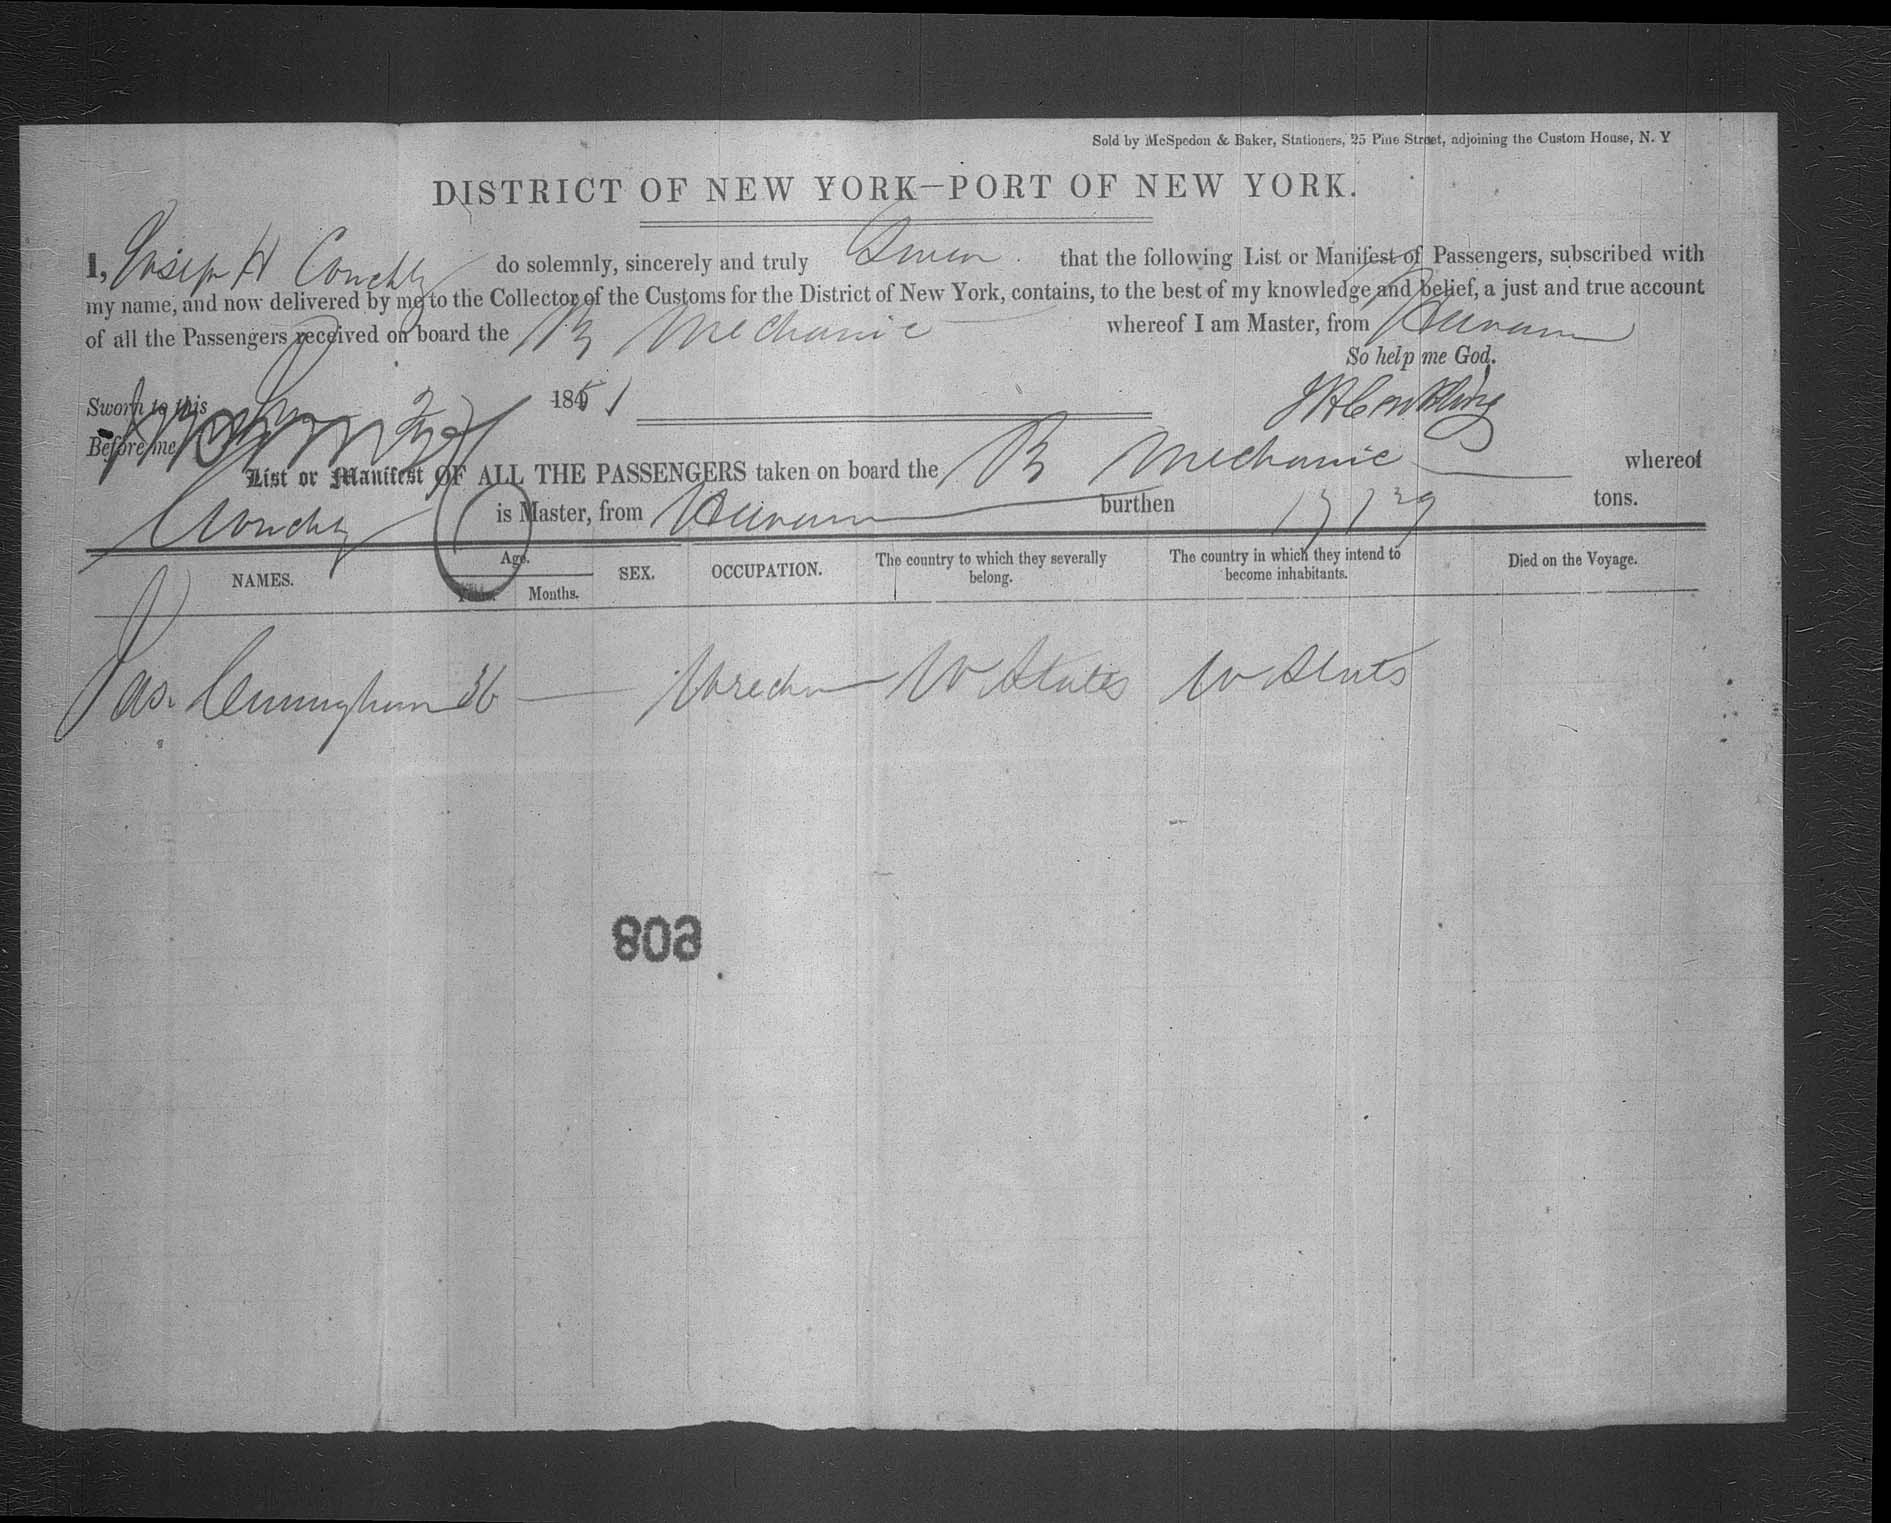 Sold by McSpedon & Baker, Stationers, 25 Pine Street, adjoining the Custom House, N. Y
DISTRICT OF NEW YORK—PORT OF NEW YORK.
I, Joseph H Conckly do solemnly, sincerely and truly Swear that the following List or Manifest of Passengers, subscribed with
my name, and now delivered by me to the Collector of the Customs for the District of New York, contains, to the best of my knowledge and belief, a just and true account
of all the Passengers received on board the B Mechanic whereof I am Master, from
So help me God.
Sworn to this 1851
J H Conkling
Before me
List or Manifest OF ALL THE PASSENGERS taken on board the B Mechanic whereof
Conckly is Master, from burthen tons.
NAMES. Age. Years. Months. SEX. OCCUPATION. The country to which they severally belong. The country in which they intend to become inhabitants. Died on the Voyage.
Jas. Cunningham 36 U States U States
809